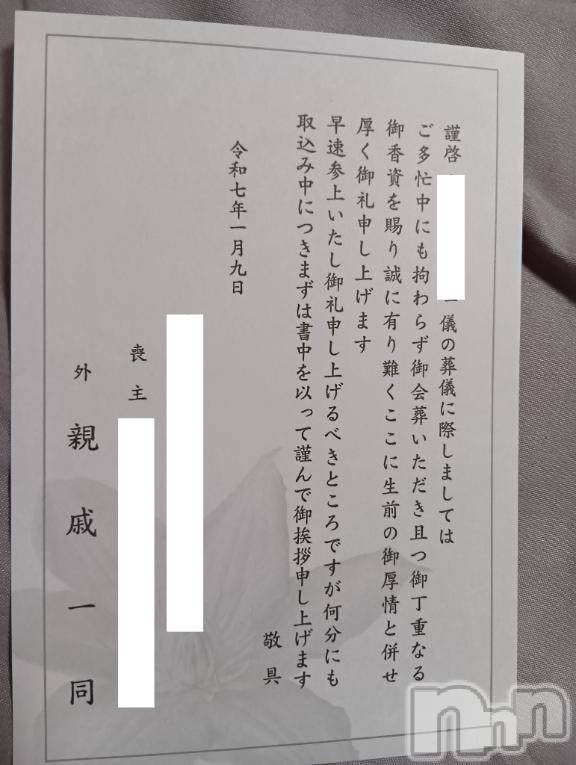 謹啓
儀の葬儀に際しましては
ご多忙中にも拘わらず御会葬いただき且つ御丁重なる
御香資を賜り誠に有り難くここに生前の御厚情と併せ
厚く御礼申し上げます
早速参上いたし御礼申し上げるべきところですが何分にも
取込み中につきまずは書中を以って謹んで御挨拶申し上げます
敬具
令和七年一月九日
喪主
外 親戚一同
nnn